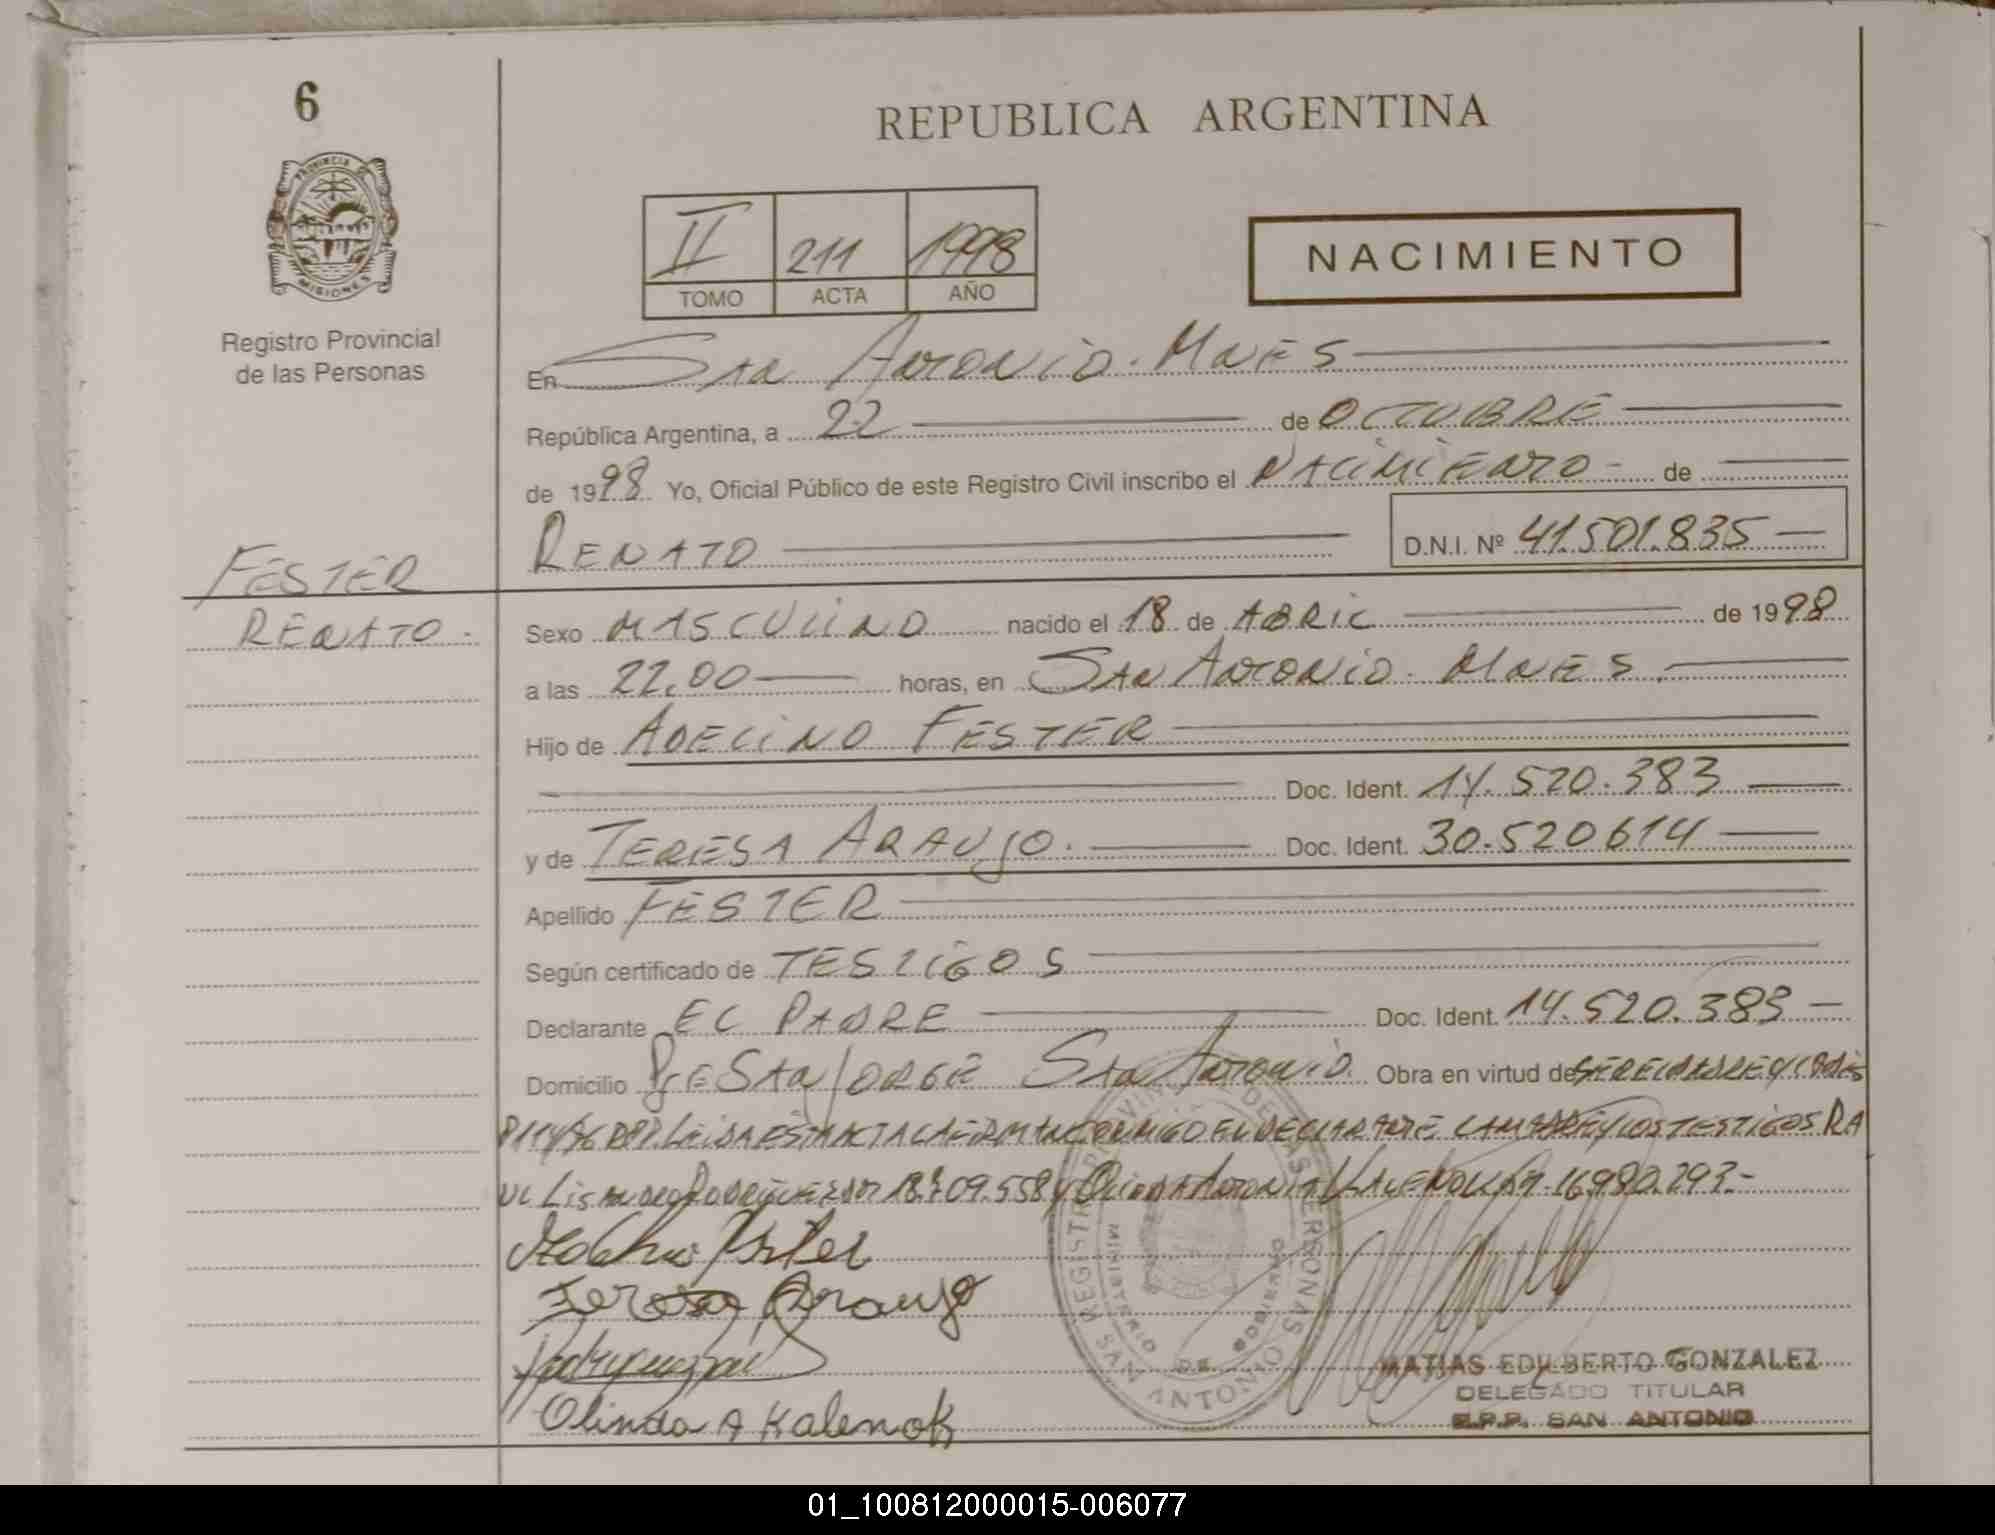 6
REPUBLICA ARGENTINA
PROVINCIA DE MISIONES
Registro Provincial
de las Personas
II 211 1998
TOMO ACTA AÑO
NACIMIENTO
En San Antonio. Mnes
República Argentina, a 22 de OCTUBRE
de 1998 Yo, Oficial Público de este Registro Civil inscribo el NACIMIENTO de
RENATO D.N.I. Nº 41.501.835
FESTER
RENATO.
Sexo MASCULINO nacido el 18 de ABRIL de 1998
a las 22,00 horas, en San Antonio. Mnes.
Hijo de ADELINO FESTER
Doc. Ident. 14.520.383
y de TERESA ARAUJO. Doc. Ident. 30.520614
Apellido FESTER
Según certificado de TESTIGOS
Declarante EL PADRE Doc. Ident. 14.520.383
Domicilio Pje San Jorge San Antonio. Obra en virtud de
LEIDA ESTA ACTA LA FIRMAN CONMIGO EL DECLARANTE LA MADRE Y LOS TESTIGOS RA
UL Rodriguez 09.558 y Olinda Antonia Kalenok 16.980.293.-
Teresa Araujo
Olinda A Kalenok
REGISTRO PROVINCIAL DE LAS PERSONAS
MINISTERIO DE GOBIERNO
SAN ANTONIO
MATIAS EDILBERTO GONZALEZ
DELEGADO TITULAR
R.P.P. SAN ANTONIO
01_100812000015-006077